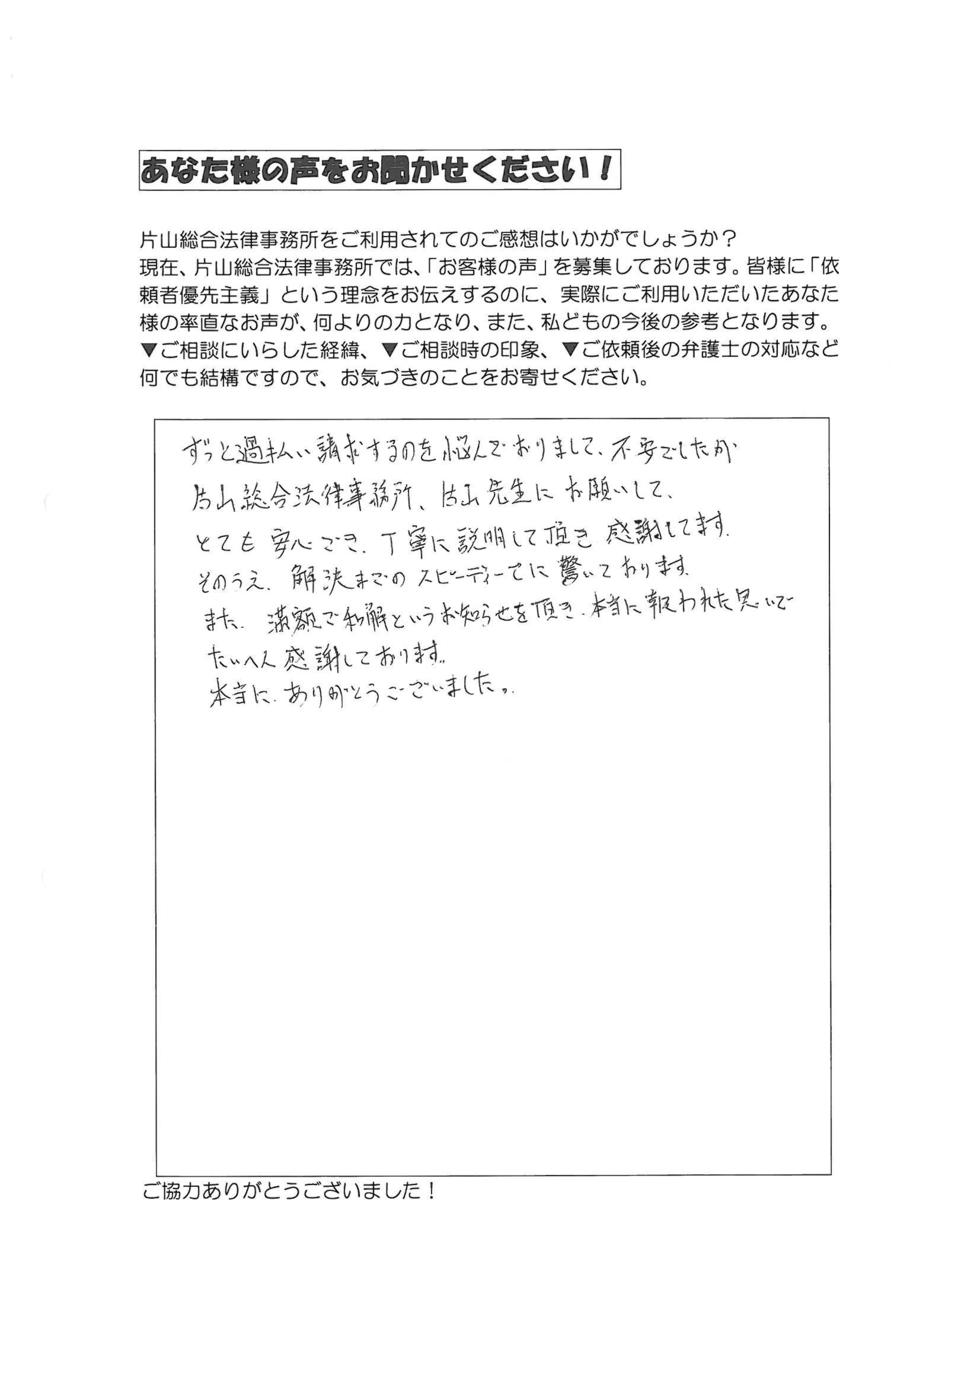 あなた様の声をお聞かせください！
片山総合法律事務所をご利用されてのご感想はいかがでしょうか？
現在、片山総合法律事務所では、「お客様の声」を募集しております。皆様に「依
頼者優先主義」という理念をお伝えするのに、実際にご利用いただいたあなた
様の率直なお声が、何よりの力となり、また、私どもの今後の参考となります。
▼ご相談にいらした経緯、▼ご相談時の印象、▼ご依頼後の弁護士の対応など
何でも結構ですので、お気づきのことをお寄せください。
ずっと過払い請求するのを悩んでおりまして、不安でしたが
片山総合法律事務所、片山先生にお願いして、
とても安心でき、丁寧に説明して頂き感謝してます。
そのうえ、解決までのスピーディーさに驚いております。
また、満額で和解というお知らせを頂き、本当に報われた思いで
たいへん感謝しております。
本当に、ありがとうございました。
ご協力ありがとうございました！